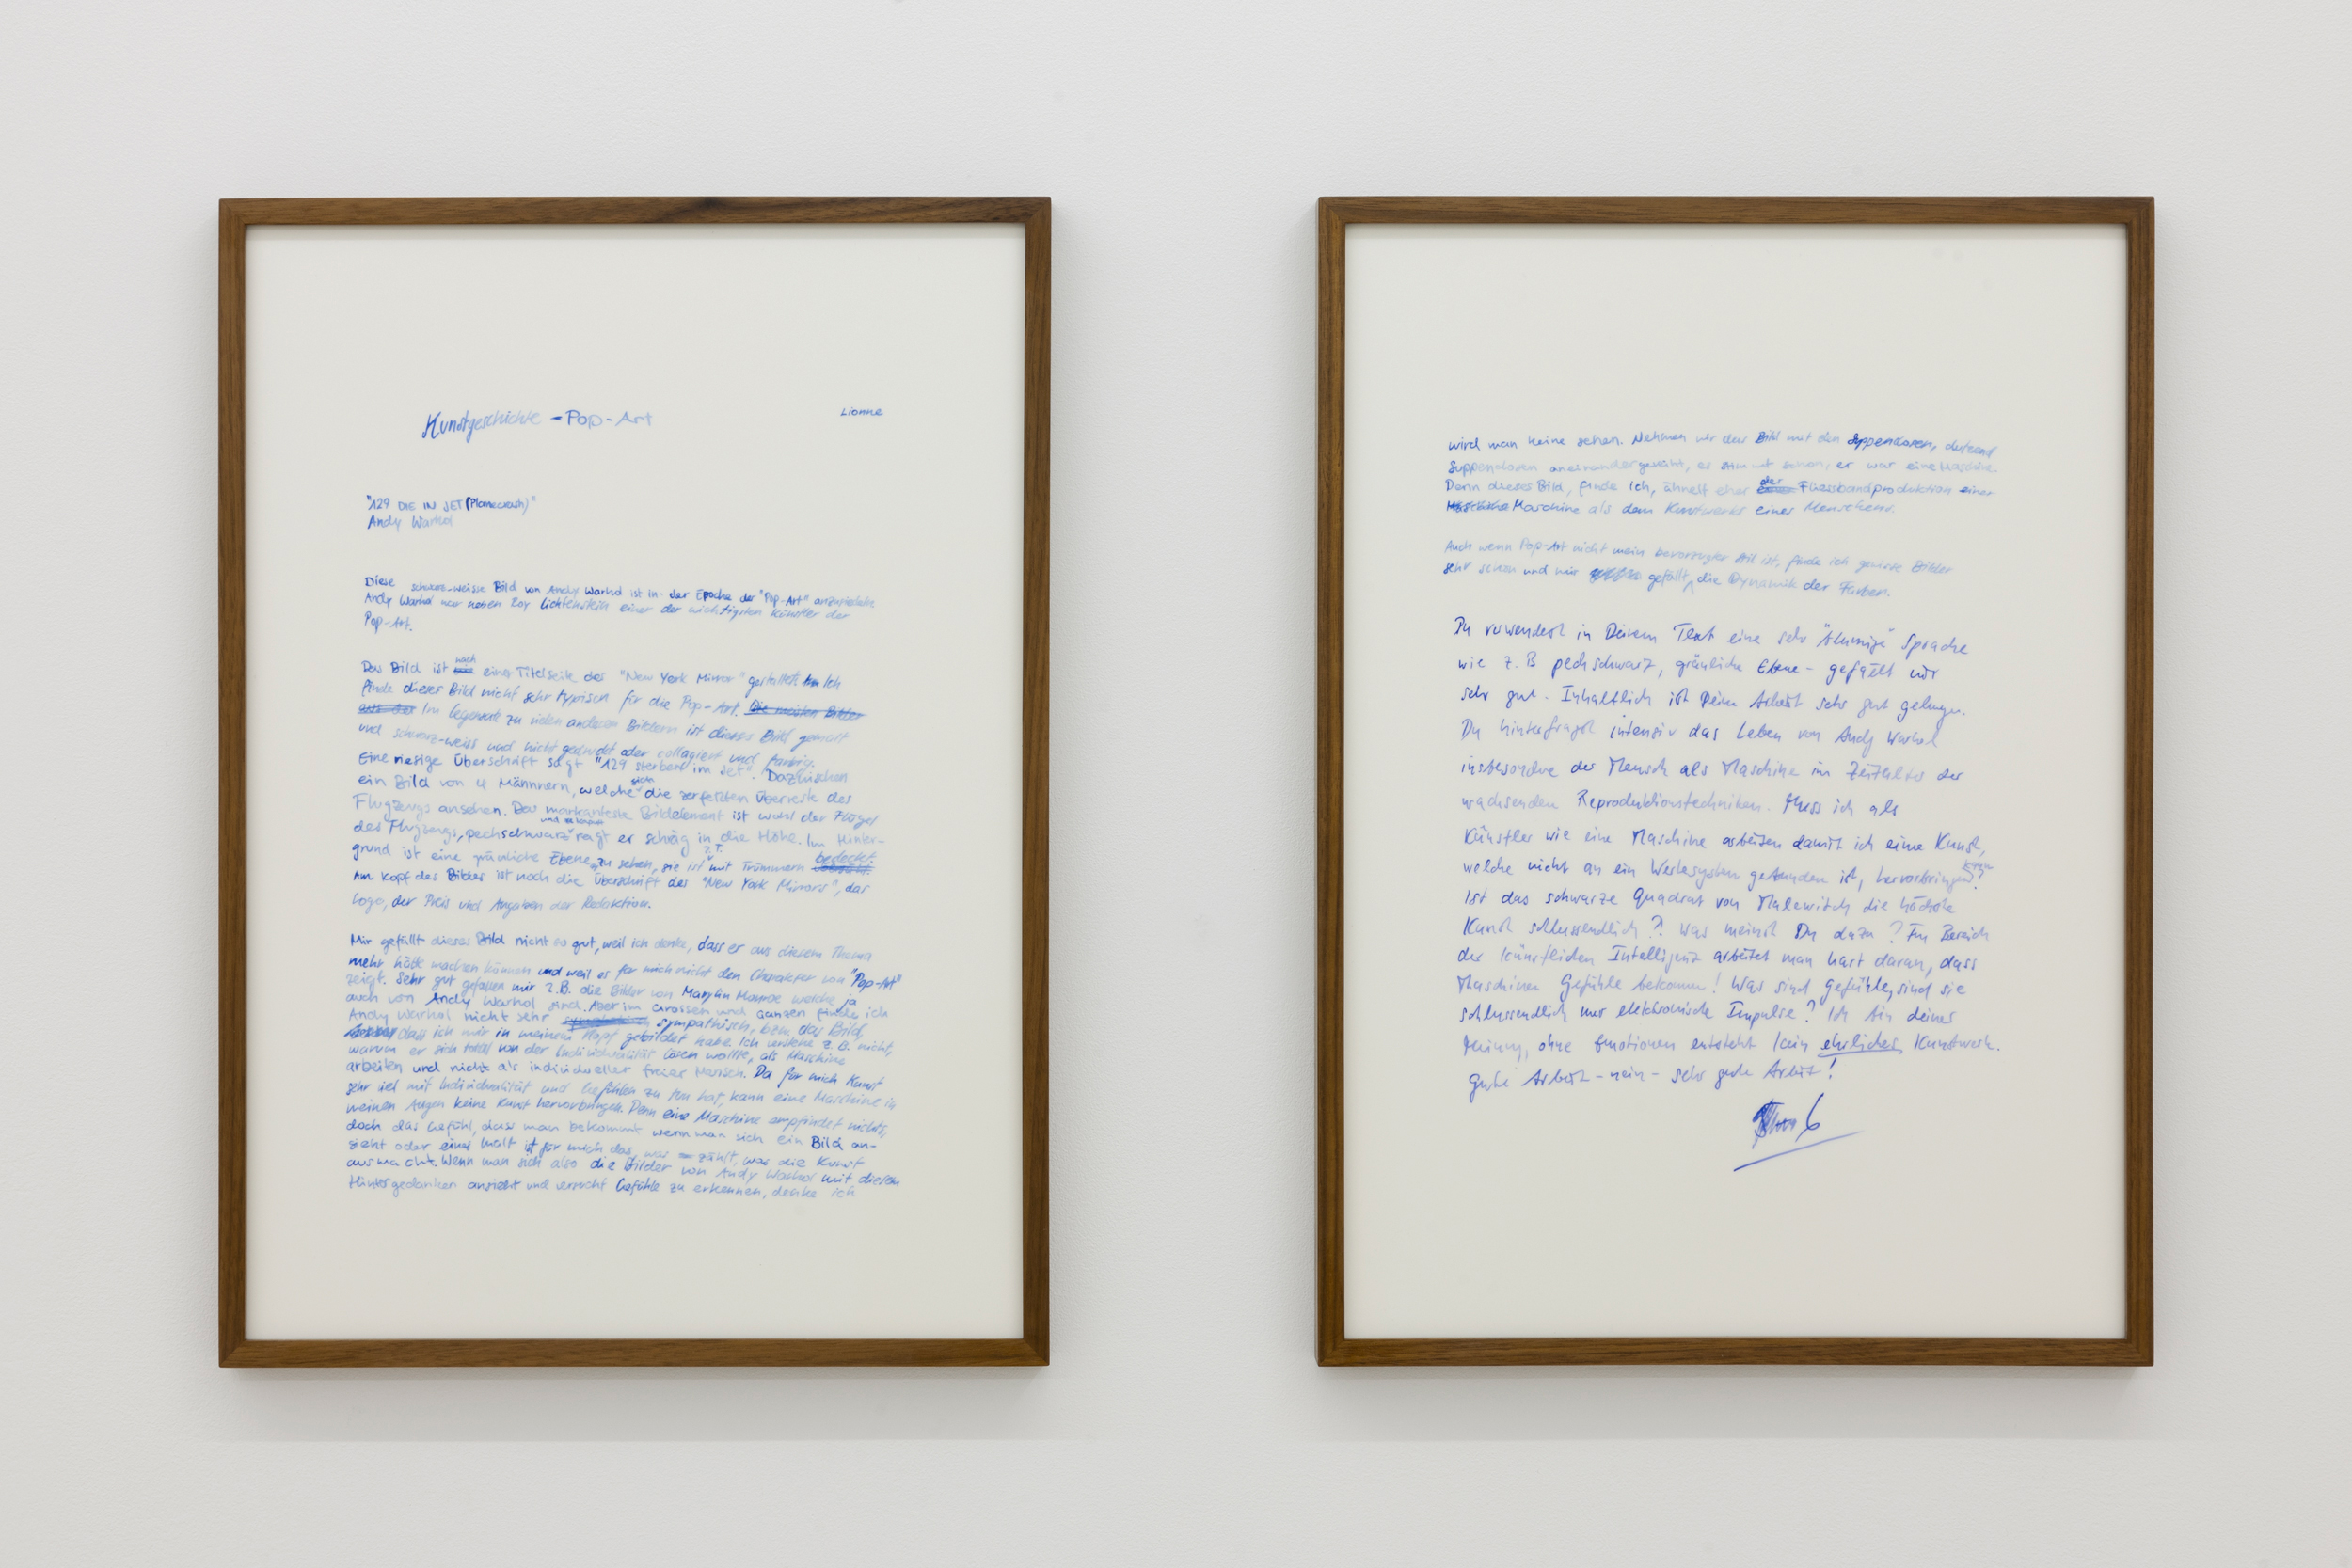 Kunstgeschichte - Pop-Art
Lionne
"129 DIE IN JET (Planecrash)"
Andy Warhol
Diese schwarz-weisse Bild von Andy Warhol ist in der Epoche der "Pop-Art" anzusiedeln
Andy Warhol war neben Roy Lichtenstein einer der wichtigsten Künstler der
Pop-Art.
Das Bild ist nach einer Titelseite des "New York Mirror" gestaltet. Ich
finde dieses Bild nicht sehr typisch für die Pop-Art. Die meisten Bilder
Im Gegensatz zu vielen anderen Bildern ist dieses Bild gemalt
und schwarz-weiss und nicht gedruckt oder collagiert und farbig.
Eine riesige Überschrift sagt "129 sterben im Jet". Dazwischen
ein Bild von 4 Männnern, welche sich die zerfetzten Überreste des
Flugzeugs ansehen. Das markanteste Bildelement ist wohl der Flügel
des Flugzeugs, pechschwarz und ragt er schräg in die Höhe. Im Hinter-
grund ist eine gräuliche Ebene zu sehen, sie ist z.T. mit Trümmern bedeckt.
Am Kopf des Bildes ist noch die Überschrift des "New York Mirrors", das
Logo, der Preis und Angaben der Redaktion.
Mir gefällt dieses Bild nicht so gut, weil ich denke, dass er aus diesem Thema
mehr hätte machen können und weil es für mich nicht den Charakter von "Pop-Art"
zeigt. Sehr gut gefallen mir z.B. die Bilder von Marylin Monroe welche ja
auch von Andy Warhol sind. Aber im Grossen und Ganzen finde ich
Andy Warhol nicht sehr sympathisch, bzw. das Bild,
dass ich mir in meinem Kopf gebildet habe. Ich verstehe z.B. nicht,
warum er sich total von der Individualität lösen wollte, als Maschine
arbeiten und nicht als individueller freier Mensch. Da für mich Kunst
sehr viel mit Individualität und Gefühlen zu tun hat, kann eine Maschine in
meinen Augen keine Kunst hervorbringen. Denn eine Maschine empfindet nichts,
doch das Gefühl, dass man bekommt wenn man sich ein Bild an-
sieht oder eines malt ist für mich das, was zählt, was die Kunst
ausmacht. Wenn man sich also die Bilder von Andy Warhol mit diesem
Hintergedanken ansieht und versucht Gefühle zu erkennen, denke ich
wird man keine sehen. Nehmen wir das Bild mit den Suppendosen, dutzend
Suppendosen aneinandergereiht, es stimmt schon, er war eine Maschine.
Denn dieses Bild, finde ich, ähnelt eher der Fliessbandproduktion einer
Maschine als dem Kunstwerks eines Menschens.
Auch wenn Pop-Art nicht mein bevorzugter Stil ist, finde ich gewisse Bilder
sehr schön und mir gefällt die Dynamik der Farben.
Du verwendest in Deinem Text eine sehr "blumige" Sprache
wie z.B pechschwarz, gräuliche Ebene - gefällt mir
sehr gut. Inhaltlich ist Deine Arbeit sehr gut gelungen.
Du hinterfragst intensiv das Leben von Andy Warhol
insbesondre der Mensch als Maschine im Zeitalter der
wachsenden Reproduktionstechniken. Muss ich als
Künstler wie eine Maschine arbeiten damit ich eine Kunst,
welche nicht an ein Wertesystem gebunden ist, hervorbringen kann?
Ist das schwarze Quadrat von Malewitch die höchste
Kunst schlussendlich?. Was meinst Du dazu? Im Bereich
der künstlichen Intelligenz arbeitet man hart daran, dass
Maschinen Gefühle bekommen! Was sind Gefühle, sind sie
schlussendlich nur elektronische Impulse? Ich bin deiner
Meinung, ohne Emotionen entsteht kein ehrliches Kunstwerk.
Gute Arbeit - nein - sehr gute Arbeit!
6